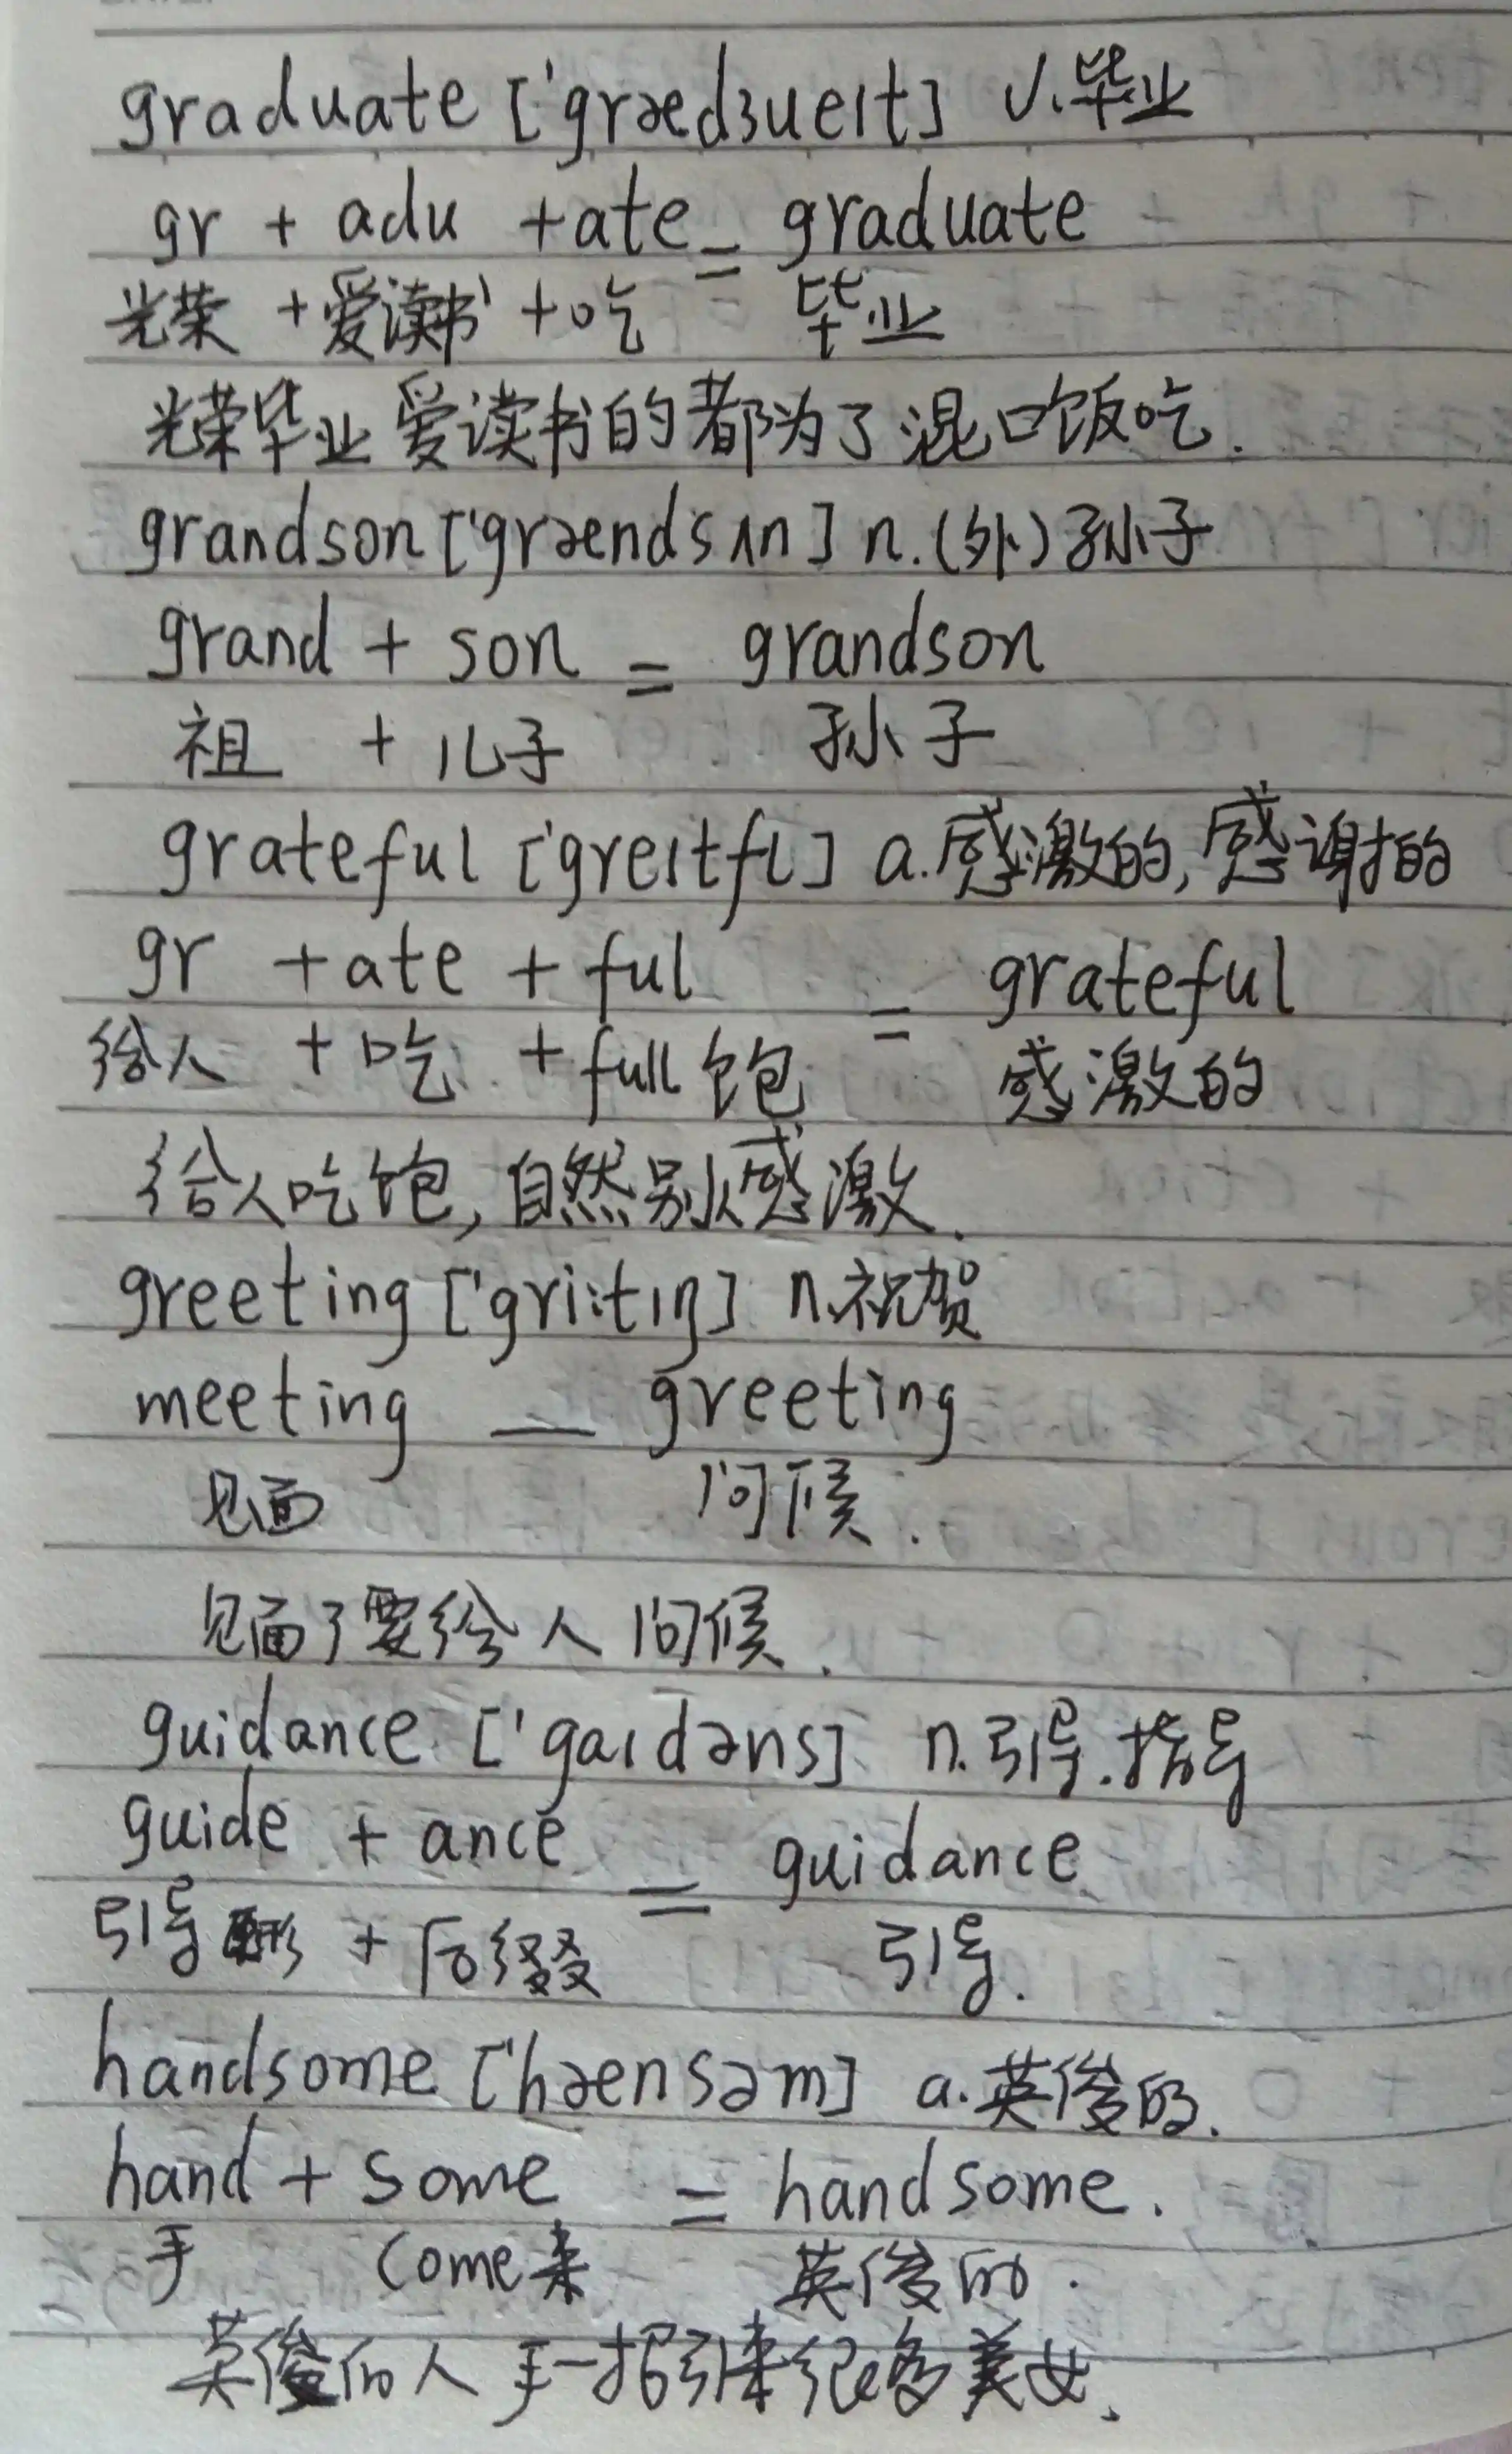 graduate ['grædʒueɪt] v.毕业
gr + adu + ate = graduate
光荣 + 爱读书 + 吃 毕业
光荣毕业爱读书的都为了混口饭吃.
grandson ['grændsʌn] n.(外)孙子
grand + son = grandson
祖 + 儿子 孙子
grateful ['greɪtfl] a.感激的,感谢的
gr + ate + ful = grateful
给人 + 吃 + full 饱 感激的
给人吃饱,自然别人感激.
greeting ['gri:tɪŋ] n.祝贺
meeting — greeting
见面 问候.
见面了要给人问候.
guidance ['gaɪdəns] n.引导.指导
guide + ance = guidance
引导 + 后缀 引导.
handsome ['hænsəm] a.英俊的.
hand + some = handsome.
手 come来 英俊的.
英俊的人手一招引来很多美女.